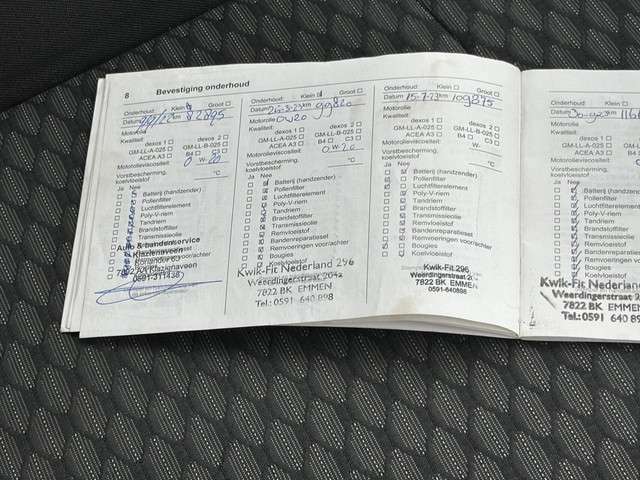 8 Bevestiging onderhoud
Onderhoud: Klein Groot
Datum km 82895
Motorolie
Kwaliteit:
dexos 1 dexos 2
GM-LL-A-025 GM-LL-B-025
ACEA A3 B4 C3
Motorolieviscositeit: 0 W- 20
Vorstbescherming, koelvloeistof °C
Ja Nee
Batterij (handzender)
Pollenfilter
Luchtfilterelement
Poly-V-riem
Tandriem
Brandstoffilter
Transmissieolie
Auto & bandenservice
Klazienaveen
7822 AK Klazienaveen
Onderhoud: Klein Groot
Datum 20-3-23 km 99820
Motorolie 0W20
Kwaliteit:
dexos 1 dexos 2
GM-LL-A-025 GM-LL-B-025
ACEA A3 B4 C3
Motorolieviscositeit: W-
Vorstbescherming, koelvloeistof °C
Ja Nee
Batterij (handzender)
Pollenfilter
Luchtfilterelement
Poly-V-riem
Tandriem
Brandstoffilter
Transmissieolie
Remvloeistof
Bandenreparatieset
Remvoeringen voor/achter
Bougies
Koelvloeistof
Kwik-Fit Nederland 296
Weerdingerstraat 204a
7822 BK EMMEN
Tel.: 0591 640 898
Onderhoud: Klein Groot
Datum 15-7-23 km 109875
Motorolie
Kwaliteit:
dexos 1 dexos 2
GM-LL-A-025 GM-LL-B-025
ACEA A3 B4 C3
Motorolieviscositeit: 0W20 W-
Vorstbescherming, koelvloeistof °C
Ja Nee
Batterij (handzender)
Pollenfilter
Luchtfilterelement
Poly-V-riem
Tandriem
Brandstoffilter
Transmissieolie
Remvloeistof
Bandenreparatieset
Remvoeringen voor/achter
Bougies
Koelvloeistof
Kwik-Fit 296
Weerdingerstraat
7822 BK EMMEN
0591-640898
Onderhoud: Klein
Datum
Motorolie
Kwaliteit:
dexos 1
GM-LL-A-025
ACEA A3
Motorolieviscositeit:
Vorstbescherming, koelvloeistof
Ja Nee
Batterij (handzender)
Pollenfilter
Luchtfilterelement
Poly-V-riem
Tandriem
Brandstoffilter
Transmissieolie
Remvloeistof
Bandenreparatieset
Remvoeringen voor/achter
Bougies
Koelvloeistof
Kwik-Fit Nederland
Weerdingerstraat
7822 BK EMMEN
Tel.: 0591 640 89